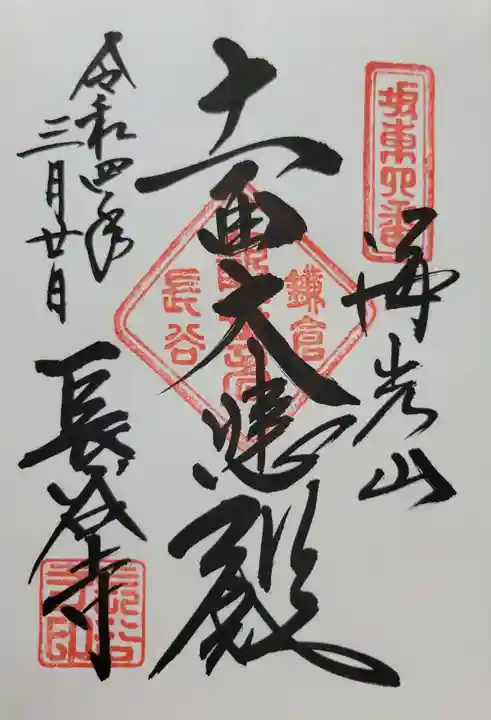 坂東四番
海光山
十一面大悲殿
鎌倉
長谷
令和四年
三月廿日
長谷寺